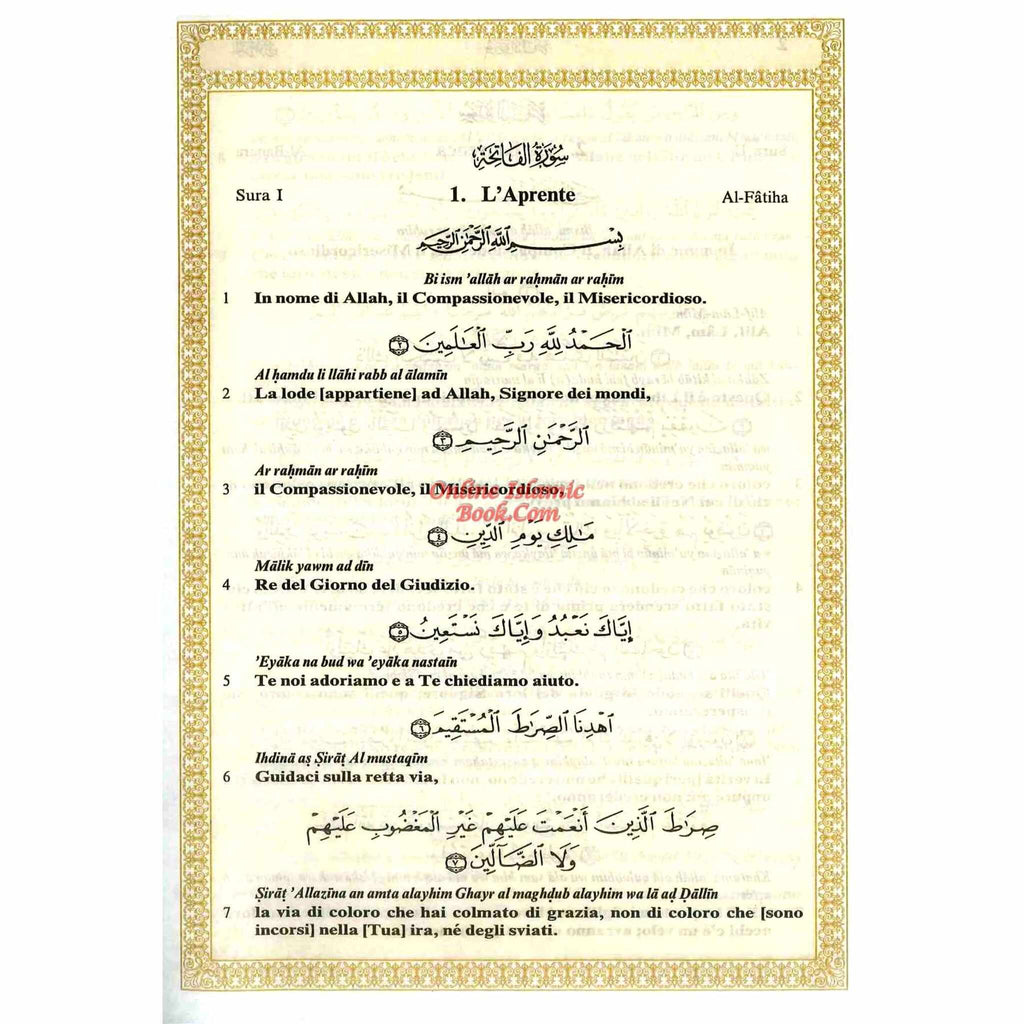 سُورَةُ الفَاتِحَةِ
Sura I 1. L'Aprente Al-Fâtiha
بِسْمِ اللَّهِ الرَّحْمَٰنِ الرَّحِيمِ
Bi ism 'allāh ar raḥmān ar raḥīm
1 In nome di Allah, il Compassionevole, il Misericordioso.
الْحَمْدُ لِلَّهِ رَبِّ الْعَالَمِينَ ٢
Al ḥamdu li llāhi rabb al ālamīn
2 La lode [appartiene] ad Allah, Signore dei mondi,
الرَّحْمَٰنِ الرَّحِيمِ ٣
Ar raḥmān ar raḥīm
3 il Compassionevole, il Misericordioso,
Online Islamic
Book.Com
مَالِكِ يَوْمِ الدِّينِ ٤
Mālik yawm ad dīn
4 Re del Giorno del Giudizio.
إِيَّاكَ نَعْبُدُ وَإِيَّاكَ نَسْتَعِينُ ٥
'Eyāka na bud wa 'eyāka nastaīn
5 Te noi adoriamo e a Te chiediamo aiuto.
اهْدِنَا الصِّرَاطَ الْمُسْتَقِيمَ ٦
Ihdinā aṣ Ṣirāṭ Al mustaqīm
6 Guidaci sulla retta via,
صِرَاطَ الَّذِينَ أَنْعَمْتَ عَلَيْهِمْ غَيْرِ الْمَغْضُوبِ عَلَيْهِمْ
وَلَا الضَّالِّينَ ٧
Ṣirāṭ 'Allazīna an amta alayhim Ghayr al maghḍub alayhim wa lā aḍ Ḍāllīn
7 la via di coloro che hai colmato di grazia, non di coloro che [sono
incorsi] nella [Tua] ira, né degli sviati.